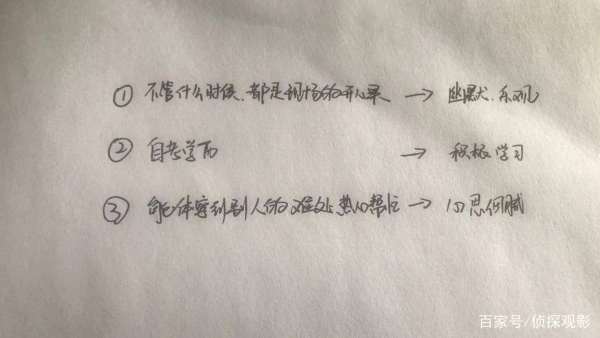 ① 不管什么时候,都是现场的开心果 → 幽默、乐观
② 自考学历 → 积极学习
③ 能体察到别人的难处热心帮忙 → 心思细腻
百家号/侦探观影